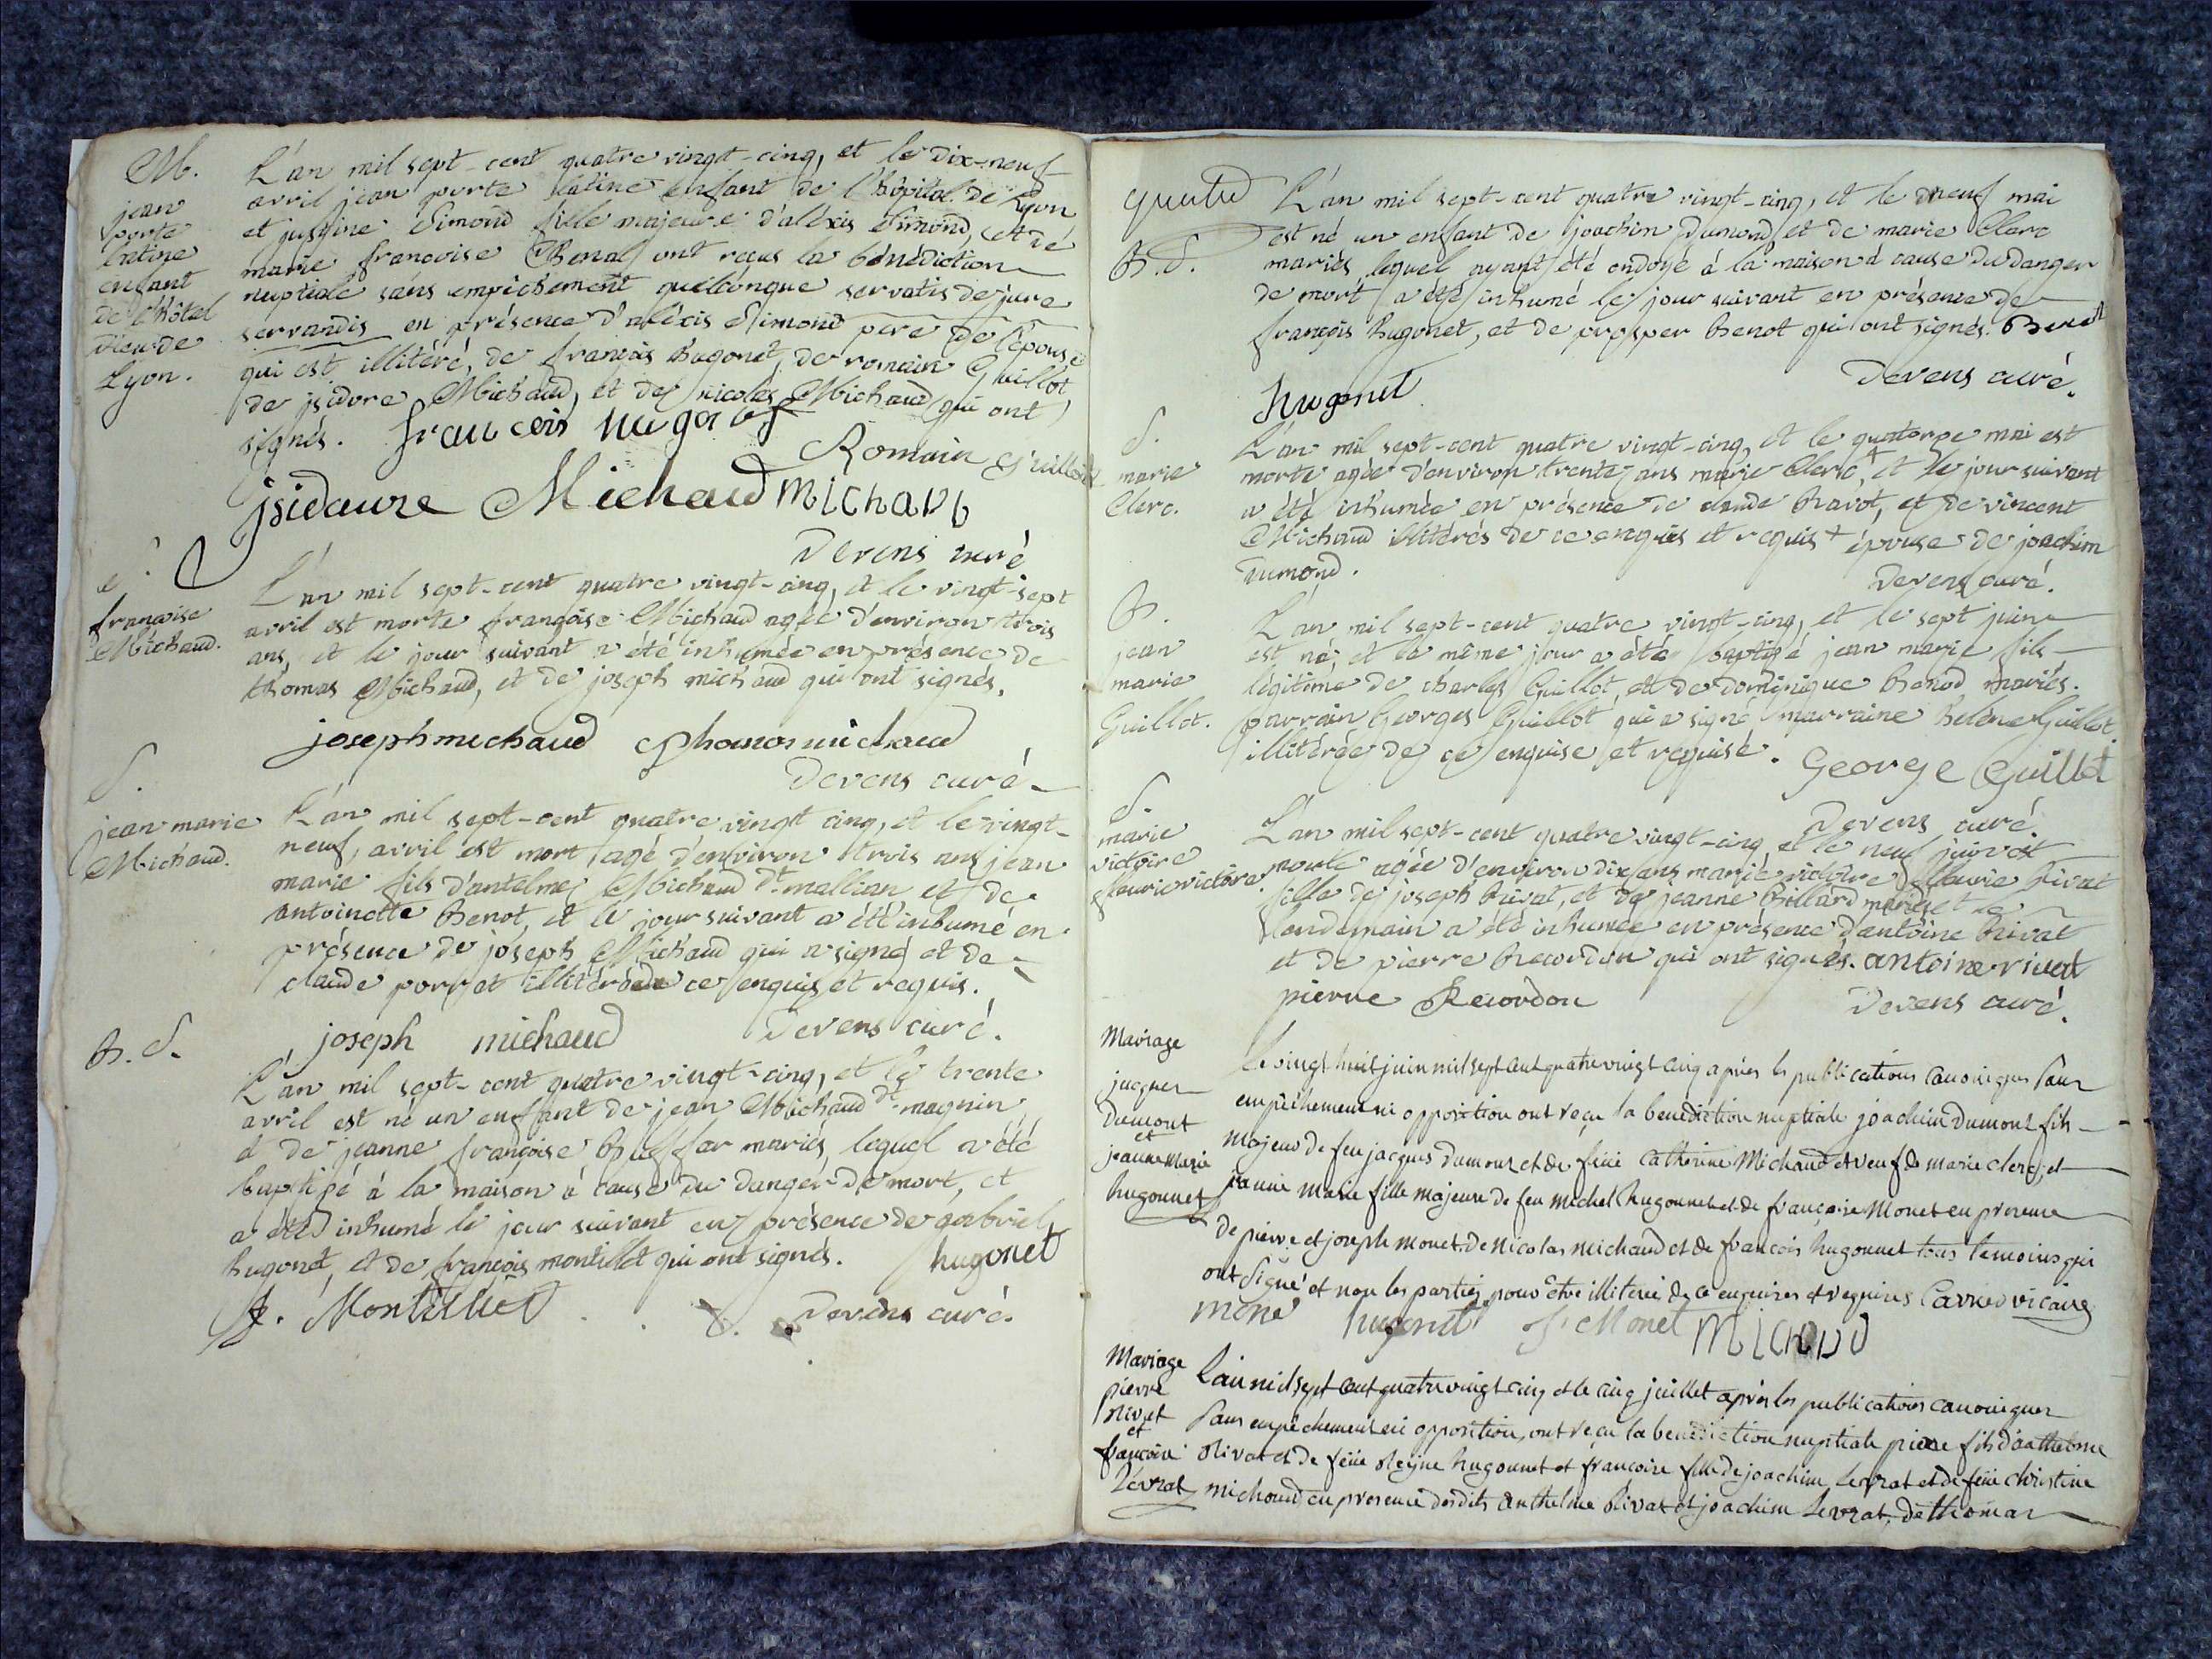 M.
jean
porte
latine
enfant
de l'hôtel
Dieu de
Lyon.
L'an mil sept-cent quatre vingt-cinq, et le dix-neuf
avril jean porte latine enfant de l'hôpital de Lyon
et justine Simond fille majeure d'alexis Simond, et de
marie françoise Benat ont reçus la bénédiction
nuptiale sans empêchement quelconque servatis de jure
servandis en présence d'alexis Simond père de l'épouse
qui est illitéré, de françois hugonet, de romain Guillot,
de jsidore Michaud, et de nicolas Michaud qui ont
signés. francois hugonet
Romain Guillot
jsidaure Michaud MICHAUD
Devens curé
S.
françoise
Michaud.
L'an mil sept-cent quatre vingt-cinq, et le vingt-sept
avril est morte françoise Michaud agée d'environ trois
ans, et le jour suivant a été inhumée en présence de
thomas Michaud, et de joseph michaud qui ont signés.
joseph michaud thomas michaud
Devens curé
S.
jean marie
Michaud.
L'an mil sept-cent quatre vingt cinq, et le vingt-
neuf, avril est mort agé d'environ trois ans jean
marie fils d'antelme Michaud dt mallian et de
antoinette Benot, et le jour suivant a été inhumé en
présence de joseph Michaud qui a signé et de
claude porret illitéré de ce enquis et requis.
joseph michaud Devens curé.
B. S.
L'an mil sept-cent quatre vingt-cinq, et le trente
avril est né un enfant de jean Michaud dt magnin
et de jeanne françoise Buffar mariés, lequel a été
baptisé à la maison à cause du danger de mort, et
a été inhumé le jour suivant en présence de gabriel
hugonet, et de françois montillet qui ont signés. hugonet
f. Montillet Devens curé.
B. S.
L'an mil sept-cent quatre vingt-cinq, et le neuf mai
est né un enfant de joachim Dumond, et de marie Clerc
mariés, lequel ayant été ondoyé à la maison à cause du danger
de mort a été inhumé le jour suivant en présence de
françois hugonet, et de prosper Benot qui ont signés. Benot
Devens curé.
hugonet
S.
marie
Clerc.
L'an mil sept-cent quatre vingt-cinq, et le quatorze mai est
morte agée d'environ trente ans marie Clerc,+ et le jour suivant
a été inhumée en présence de claude Ravot, et de vincent
Michaud illitérés de ce enquis et requis + épouse de joachim
Dumond.
Devens curé.
B.
jean
marie
Guillot.
L'an mil sept-cent quatre vingt-cinq, et le sept juin
est né, et le même jour a été baptisé jean marie fils
légitime de charles Guillot, et de dominique Benod mariés.
parrain Georges Guillot qui a signé marraine helène Guillot
illitérée de ce enquise et requise. George Guillot
Devens curé.
S.
marie
victoire
fleurie victoire
L'an mil sept-cent quatre vingt-cinq et le neuf juin est
morte agée d'environ dix ans marie victoire fleurie Rivat
fille de joseph Rivat, et de jeanne Billard mariés et le
lendemain a été inhumée en présence d'antoine Rivat
et de pierre Recordon qui ont signés. antoine rivat
pierre Recordon Devens curé.
Mariage
jacques
Dumont
et
jeanne Marie
hugonnet
Le vingt huit juin mil sept cent quatre vingt cinq apries les publications canoniques sans
empêchement ni opposition ont reçu la benediction nuptiale joachim Dumont fils
majeur de feu jacques Dumont et de feüe Catherine Michaud et veuf de marie clerc, et
jeanne marie fille majeure de feu michel hugonnet et de françoise Monet en presence
de pierre et joseph monet de Nicolas michaud et de francois hugonnet tous temoins qui
ont signé et non les parties pour être illiterés de ce enquises et requises Carned vicaire
moné hugonet J. Monet MICHAUD
Mariage
pierre
Rivat
et
francoise
Levrat
L'an mil sept cent quatre vingt cinq et le cinq juillet apries les publications canoniques
sans empêchement ni opposition, ont reçu la benediction nuptiale pierre fils d'anthelme
Rivat et de feüe Reyne hugonnet et francoise fille de joachim Levrat et de feüe Christine
michoud en presence desdits anthelme Rivat et joachim Levrat, de thomas